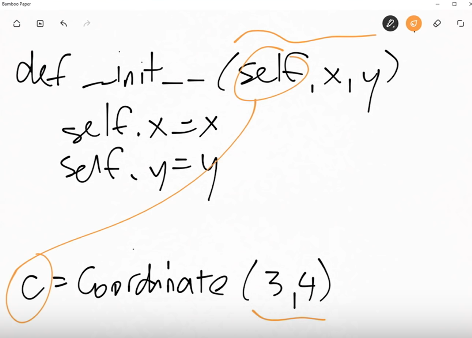 Bamboo Paper
def __init__ (self, x, y)
self.x = x
self.y = y
c = Coordinate (3,4)